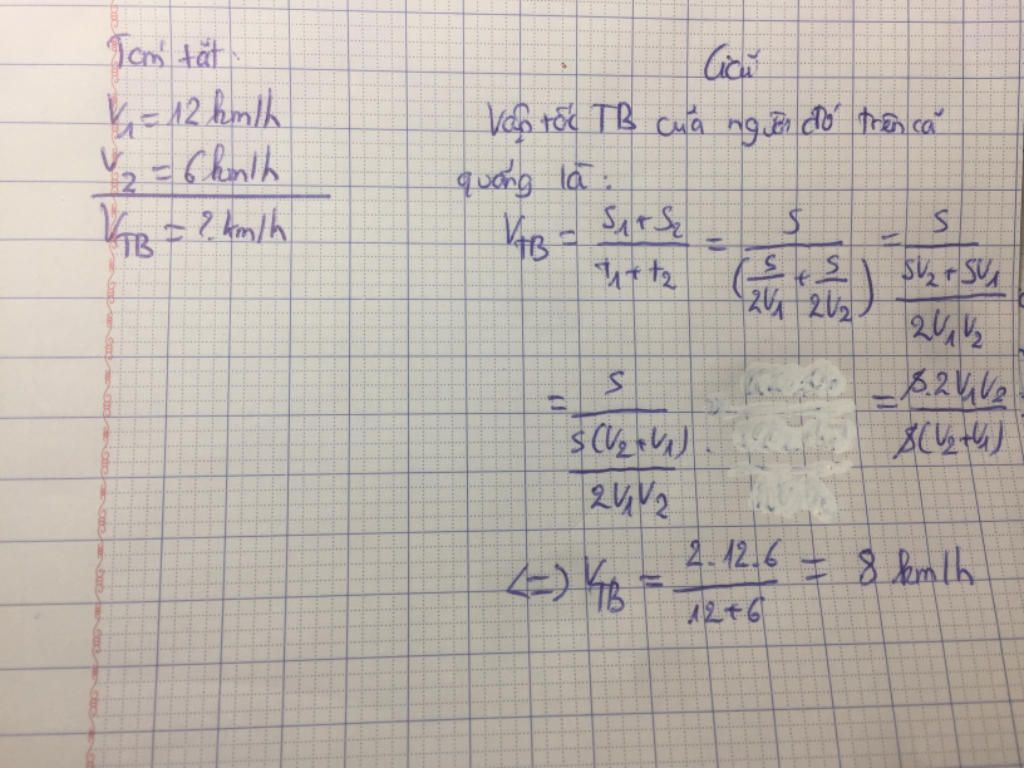 Tóm tắt:
V₁ = 12 km/h
V₂ = 6 km/h
V_TB = ? km/h
Giải
Vận tốc TB của người đó trên cả
quãng là:
V_TB = (S₁ + S₂)/(t₁ + t₂) = S/(S/2V₁ + S/2V₂) = S/((SV₂ + SV₁)/2V₁V₂)
= S/(S(V₂ + V₁)/2V₁V₂) = S.2V₁V₂/S(V₂+V₁)
<=> V_TB = 2.12.6/(12+6) = 8 km/h